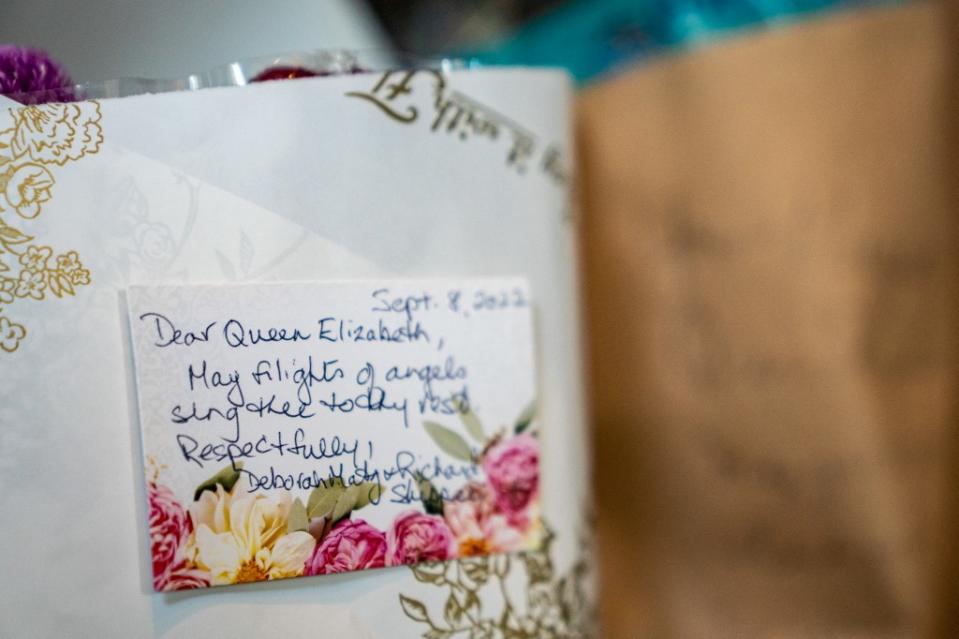 it with
Sept. 8, 2022
Dear Queen Elizabeth,
May flights of angels
sing thee to thy rest.
Respectfully,
Deborah Maty & Richard